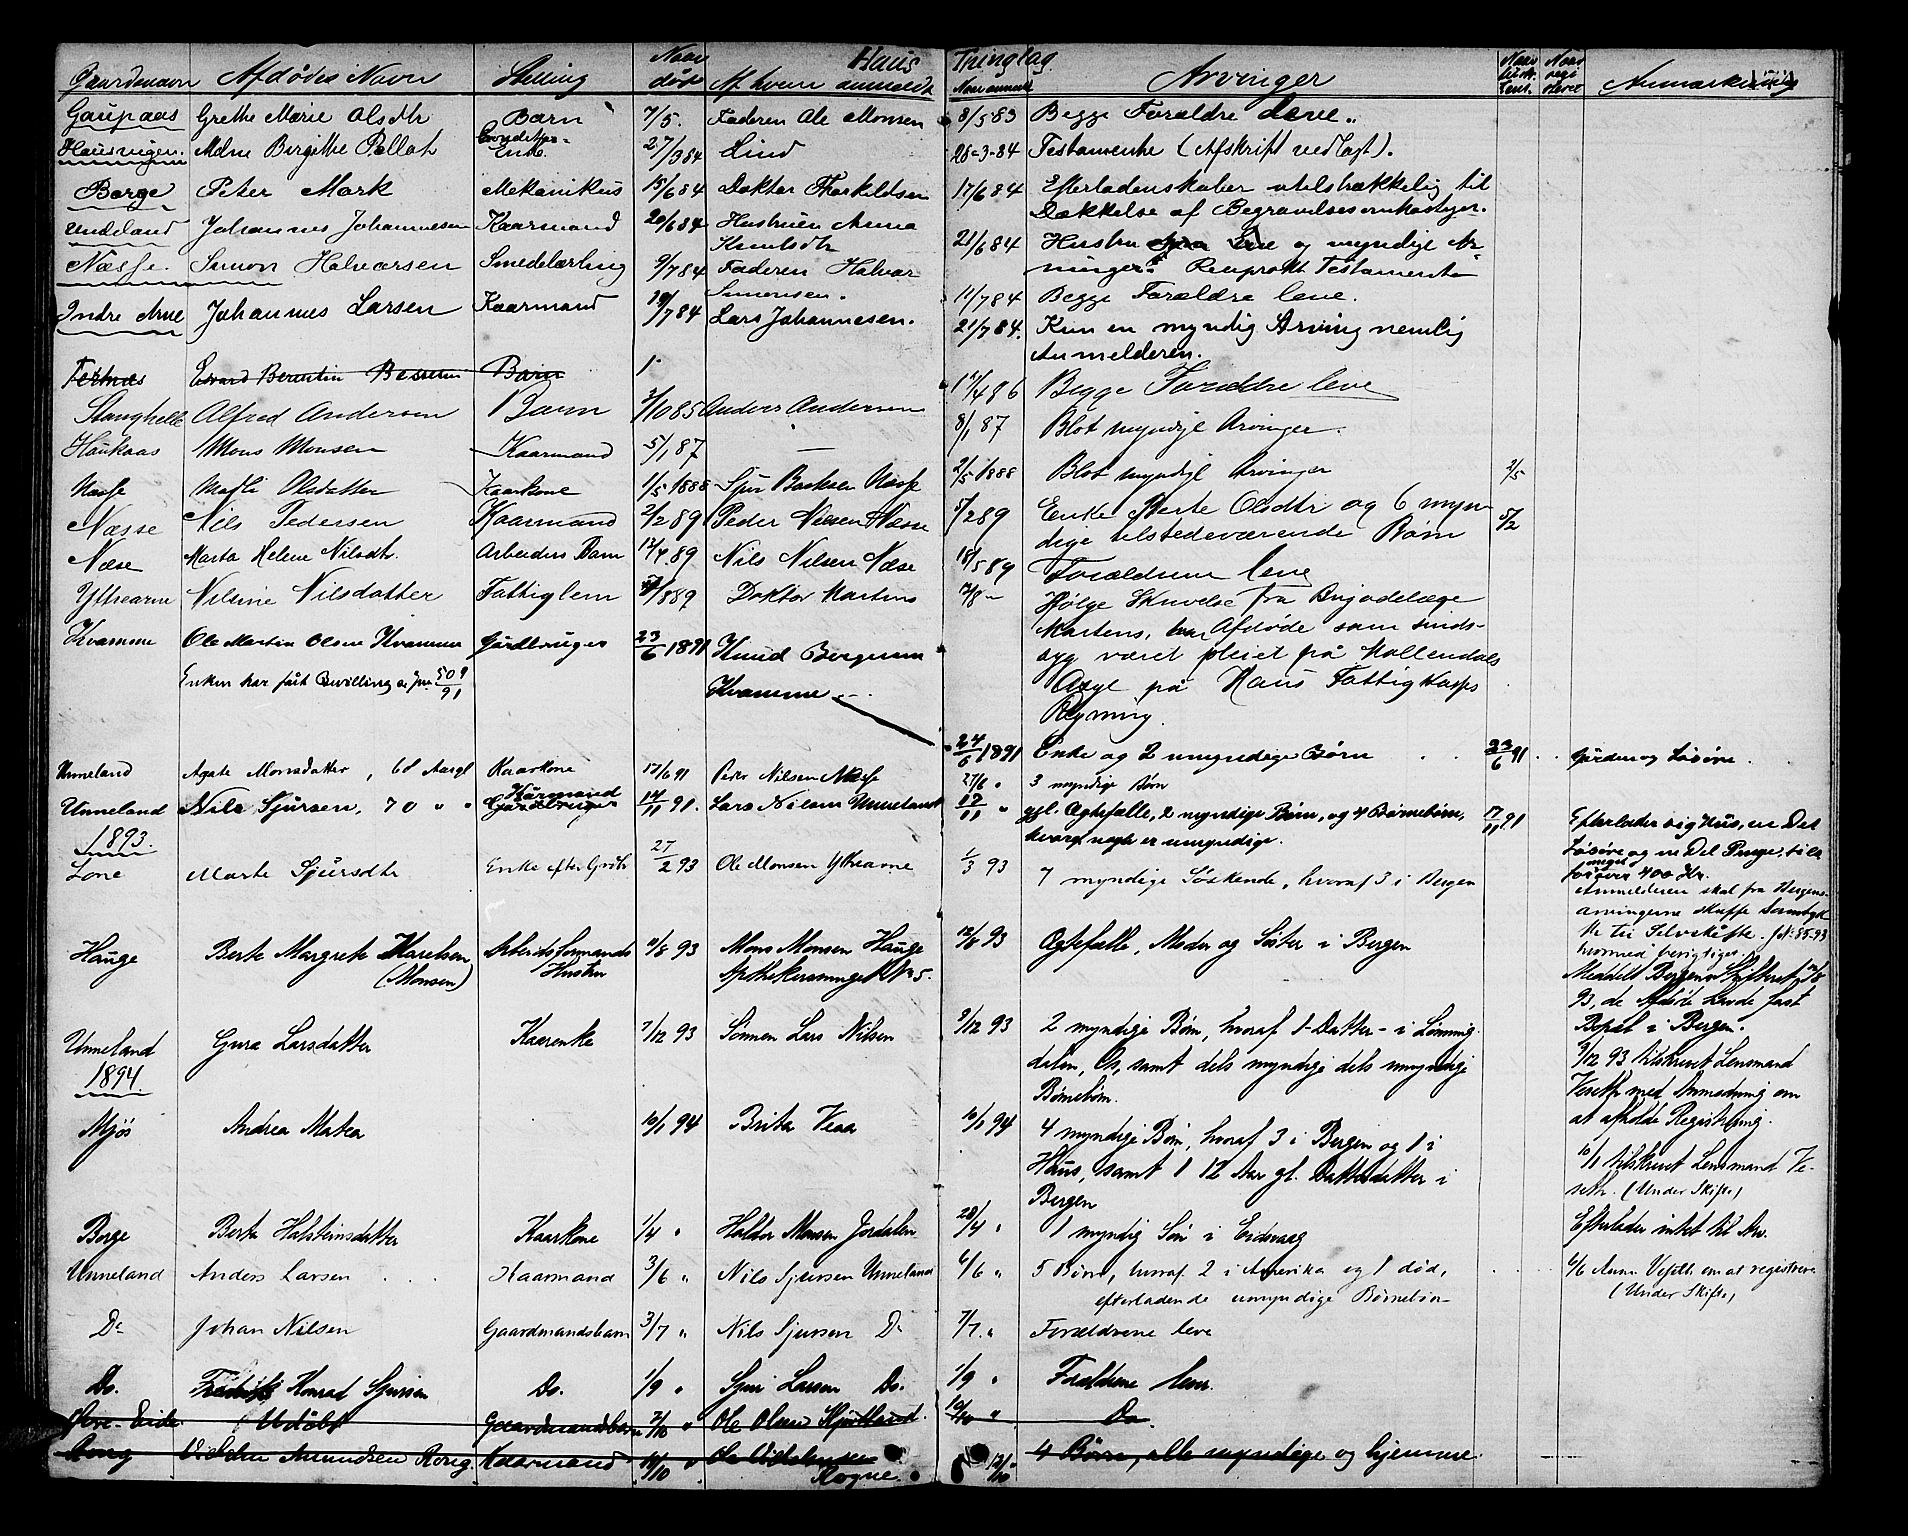 Haus Thinglag
Gaardsnavn Afdødes Navn Stilling Naar døde Af hvem anmeldt Naar anmeldt Arvinger Anmærkning
Gaupaas Grethe Marie Olsdtr Barn 7/5. Faderen Ole Monsen 8/5 83 Begge Forældre Leve.
Hausvigen. Mdme Birgithe Enke. 27/3 84 Lind 28-3-84 Testamente (Afskrift vedlagt).
Borge Peter Mork Mekanikus 15/6 84 Doktor Thorkildsen 17/6 84 Efterladenskaber utilstrækkelig til
Dækkelse af Begravelsesomkostger.
Unneland Johannes Johannesen Kaarmand 20/6 84 Hustruen Anna
21/6 84 Hustru Leve og myndige Ar-
vinger. Reciprokt Testamente
Næsse. Simon Halvorsen Smedelærling 9/7 84 Faderen Halvor
Simonsen. 11/7 84 Begge Forældre leve.
Indre Arne Johannes Larsen Kaarmand 19/7 84 Lars Johannesen. 21/7 84. Kun en myndig Arving nemlig
Anmelderen.
Tertnæs Edvard Berentin Barn 1
11/4 86 Begge Forældre leve
Stanghelle Alfred Andersen Barn 3/10 85 Anders Andersen
8/1 87 Blot myndige Arvinger.
Haukaas Mons Monsen Kaarmand 5/1 87 —
2/5 1888 Blot myndige Arvinger 2/5
Næsse Olsdatter Kaarkone 1/5 1888 Næsse
Næsse Nils Pedersen Kaarmand 2/2 89 Peder Nilsen Næsse 5/2 89 Enke Merte Olsdtr og 6 myn 5/2
dige tilstedeværende Børn
Næse Marta Helene Nilsdtr. Arbeiders Barn 17/4 89 Nils Nilsen Næse 18/5 89 Forældrene leve
Ytrearne Nilsine Nilsdatter Fattiglem /8 89 Doktor Martens 12/8 — Ifølge Skrivelse fra Brigadelæge
Martens, har Afdøde som sinds-
syg været pleiet på Møllendals
Asyl på Haus Fattigkasses
Regning.
Kvamme Ole Martin Olsen Kvamme Gårdbruger 23/6 1891 Knud Bergesen
Enken har fåt Bevilling 509/91 Kvamme
24/6 1891 Enke og 2 umyndige Børn 23/6 91 Gården og Løsøre.
Unneland Agate Monsdatter, 68 Aar gl Kaarkone 17/6 91 Peder Nilsen Næsse 27/6 " 3 myndige Børn
Unneland Nils Sjursen, 70 " " Kårmand Gårdbruger 14/11 91. Lars Nilsen Unneland 17/11 " gjl. Ægtefælle, 2 myndige Børn, og 4 Børnebørn, 17/11 91 Efterlader sig Hus, en Del
hvoraf nogle er umyndige.
Løsøre og en Del Penge, tils
foruden 400 Kr.
1893.
Lone Marte Sjursdtr Enke efter Grdbr 27/2 93 Ole Monsen Ytrearne 1/3 93 7 myndige Søskende, hvoraf 3 i Bergen Anmelderen skal fra Bergens-
arvingerne skaffe Samtyk
ke til Selvskifte.
hvormed berigtiges.
Hauge Berte Margrete Karelsen (Monsen) Arbeidsformands Hustru 11/8 93 Mons Monsen Hauge 12/8 93 Ægtefælle, Moder og Søster i Bergen Meddelt Bergens Skifteret
Apothekersmuget No 5.
93, da Afdøde havde fast
Bopæl i Bergen.
Unneland Gura Larsdatter Kaarenke 7/12 93 Sønnen Lars Nilsen 9/12 93 2 myndige Børn, hvoraf 1 - Datter - i Lønning- 9/12 93 tilskrevet Lensmand
dalen, Os, samt dels myndige dels umyndige Veseth med Anmodning om
Børnebørn. at afholde Registrering.
1894.
Mjøs Andrea Matea 10/1 94 Brita Veaa 10/1 94 4 myndige Børn, hvoraf 3 i Bergen og 1 i 10/1 tilskrevet Lensmand Ve-
Haus, samt 1 12 Aar gl. Datterdatter i seth. (Under Skifte)
Bergen
Borge Berta Halsteinsdatter Kaarkone 1/4 " Haldor Monsen Jordalen 28/4 " 1 myndig Søn i Eidsvaag Efterlader intet til Arv.
Unneland Anders Larsen Kaarmand 3/6 " Nils Sjursen Unneland 6/6 " 5 Børn, hvoraf 2 i Amerika og 1 død, 6/6 Anm. Veseth om at registrere
efterladende umyndige Børnebørn (Under Skifte)
Do Johan Nilsen Gaardmandsbarn 3/7 " Nils Sjursen Do 7/7 " Forældrene leve
Do. Fredrik Konrad Sjursen Do. 1/9 " Sjur Larsen Do. 1/9 " Forældrene lever.
Øvre-Eide Udøbt Gaardmandsbarn 7/10 " Ole Olsen 10/10 " Do.
Rong Amundsen Rong. Kaarmand 11/10 " Ole
Rogne 12/10 4 Børn, alle myndige og hjemme.